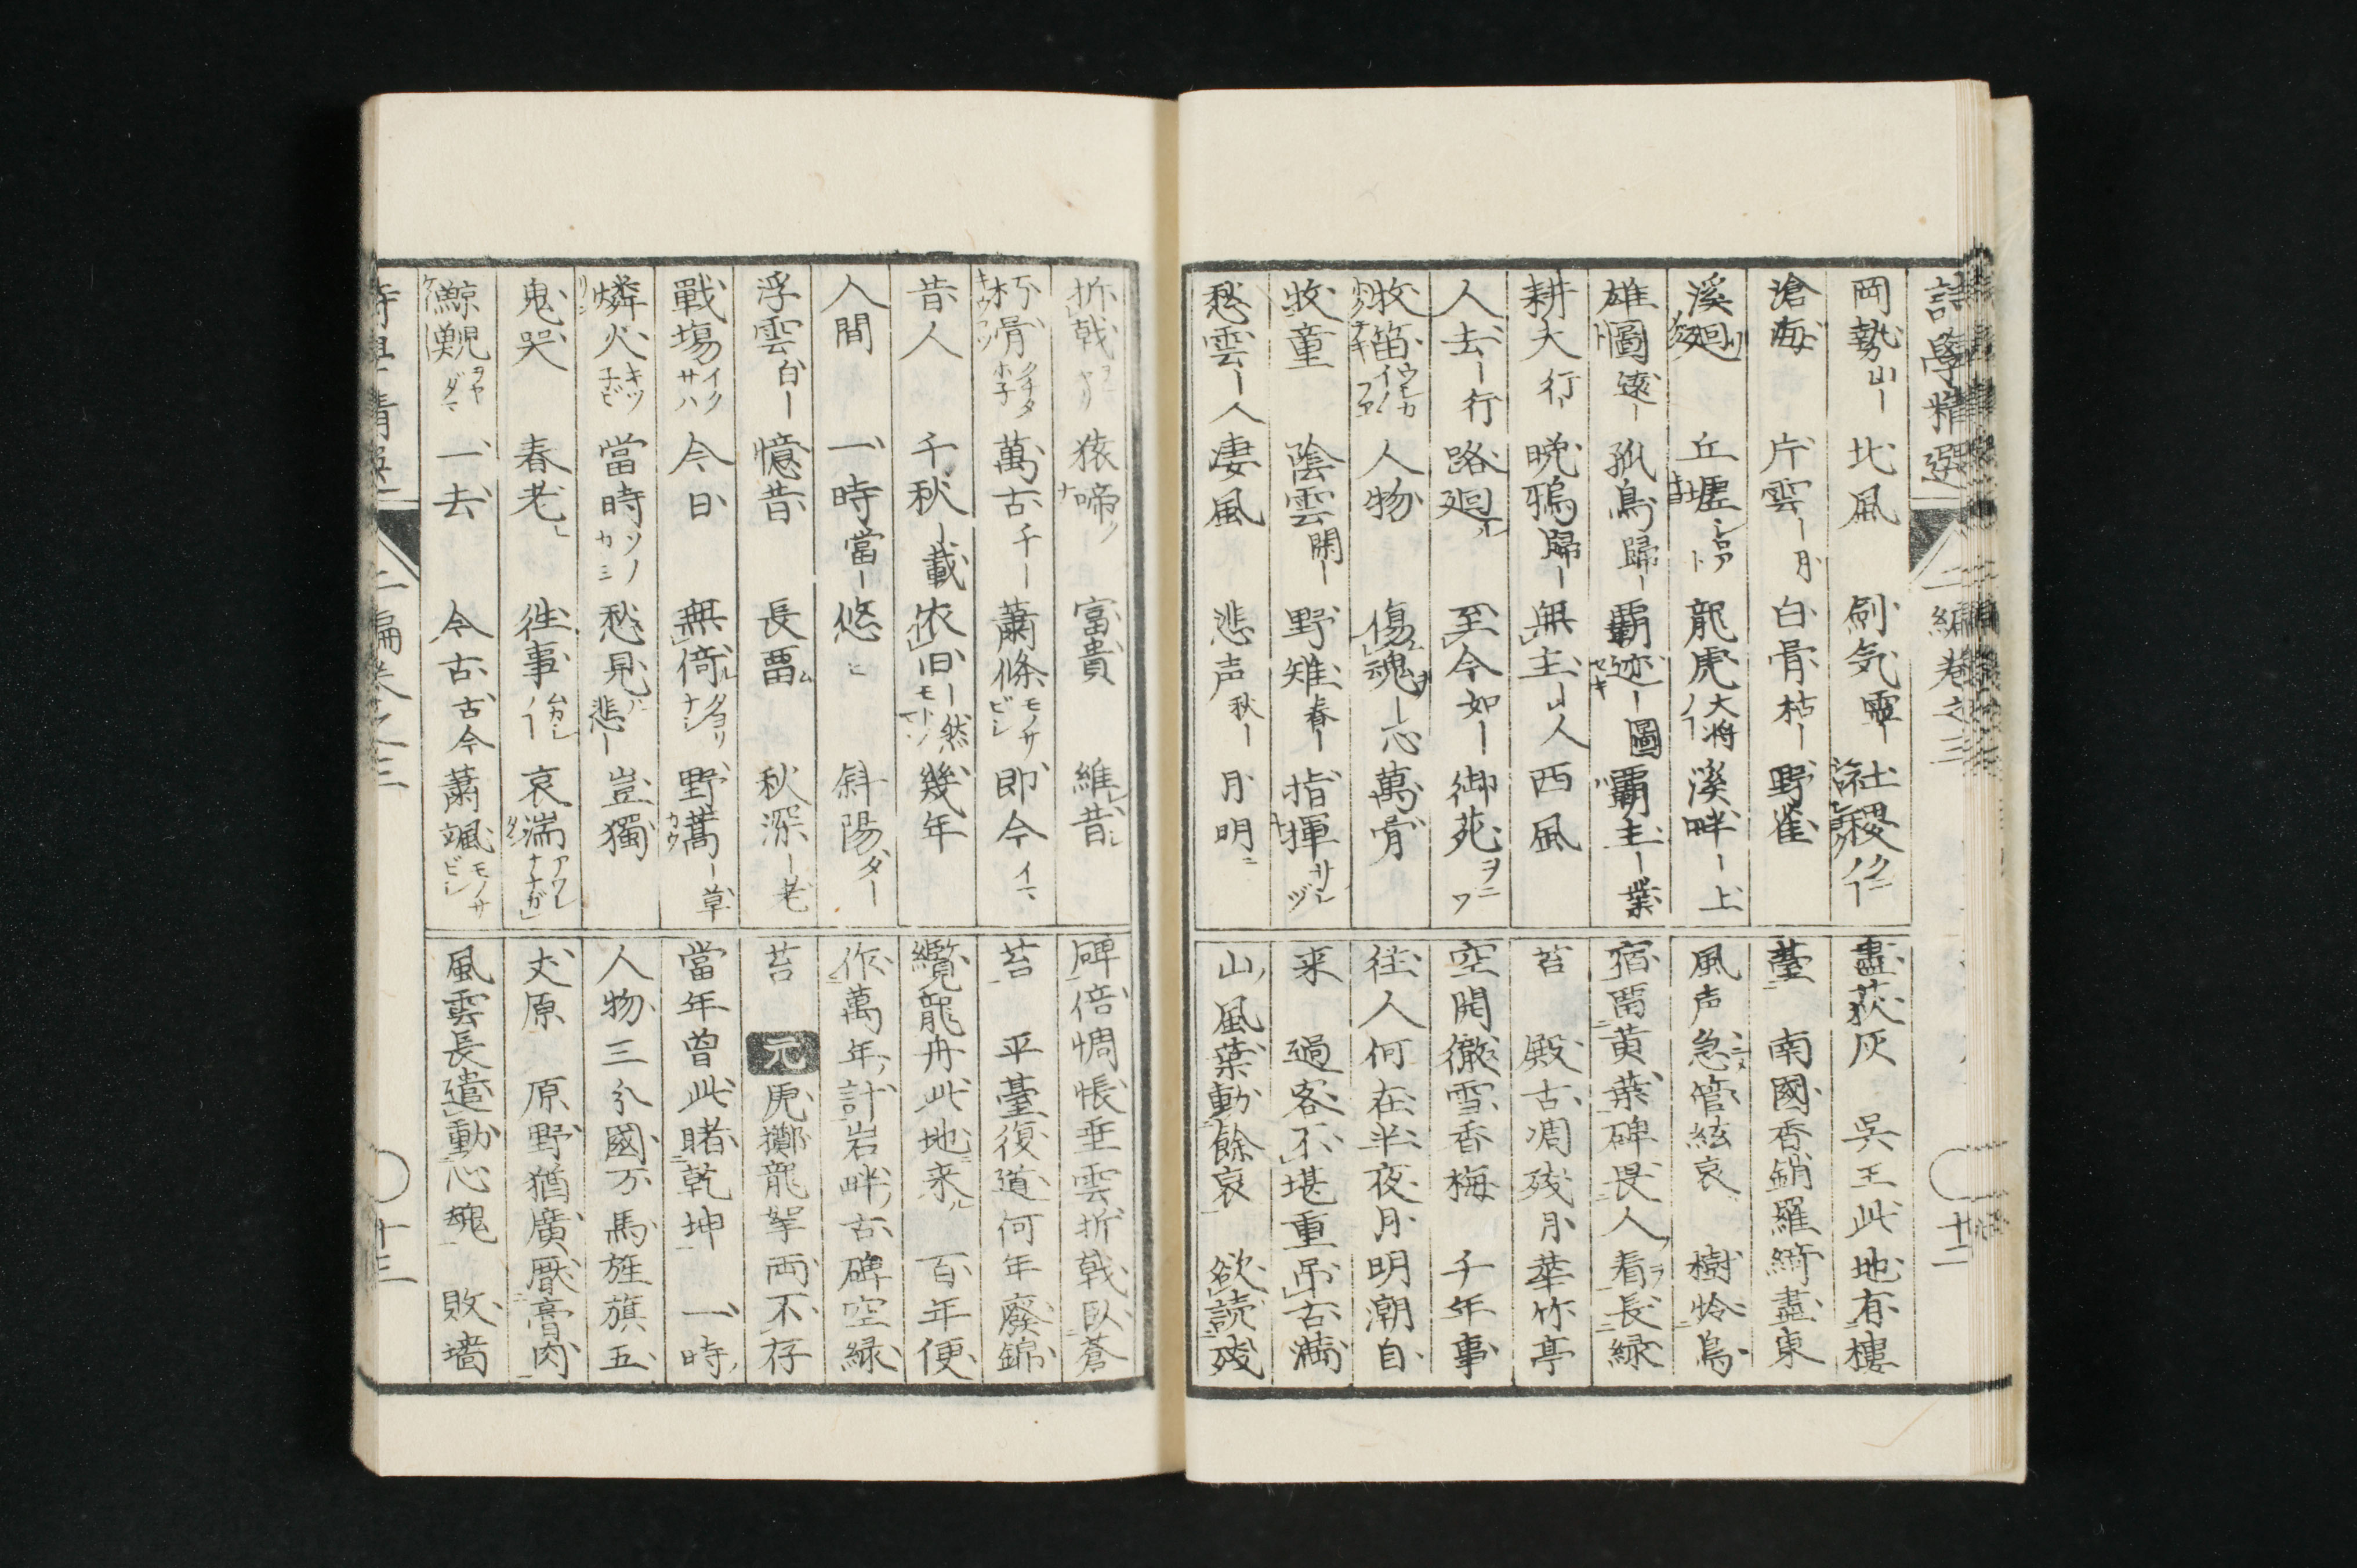 詩學精選 二編卷之三 十二
岡勢山ー 北風 劍気靈ー 社稷クニノ
滄海 片雲ー月 白骨枯ー 野雀
溪廻 丘壚 龍虎大将ノ 溪畔ー上
雄圖遠ー 孤鳥歸ー 霸迹ー圖 霸主ー業
耕犬行 晩鴉歸ー 無主山人 西風
人去ー行 路廻ル 至今如ー 御苑ヲニワ
牧笛 人物 傷魂ー心 萬宵
牧童 陰雲閑ー 野雉春ー 指揮サシヅ
愁雲ー人 凄風 悲声秋ー 月明
盡荻灰 吳王此地有樓
臺 南國香銷羅綺盡東
風声急管絃哀 樹怜鳥
宿畱黄葉碑畏人看長緑
苔 殿古凋残月華竹亭
空開徹雪香梅 千年事
往人何在半夜月明潮自
来 過客不堪重吊古満
山風葉動餘哀 欲読残
折戟 猿啼 富貴 維昔
朽骨 萬古千ー 蕭條モノサビシ 即今イマ
昔人 千秋ー載 依旧ー然 幾年
人間 一時當ー 悠〻 斜陽
浮雲白ー 憶昔 長畱 秋深ー老
戰場イクサハ 今日 無倚 野蒿ー草
燐火キツ子ビ 當時ソノカミ 愁見悲ー 豈獨
鬼哭 春老 往事ムカシノ 哀湍
鯨鯢 一去 今古古今 蕭颯モノサビシ
碑倍惆悵垂雲折戟臥蒼
苔 平臺復道何年廢錦
纜龍舟此地来 百年便
作萬年計岩畔古碑空緑
苔 元 虎擲龍拏両不存
當年曽此賭乾坤 一時
人物三分國万馬旌旗五
丈原 原野猶廣厭膏肉
風雲長遣動心魂 敗墻
二編卷之三 十三